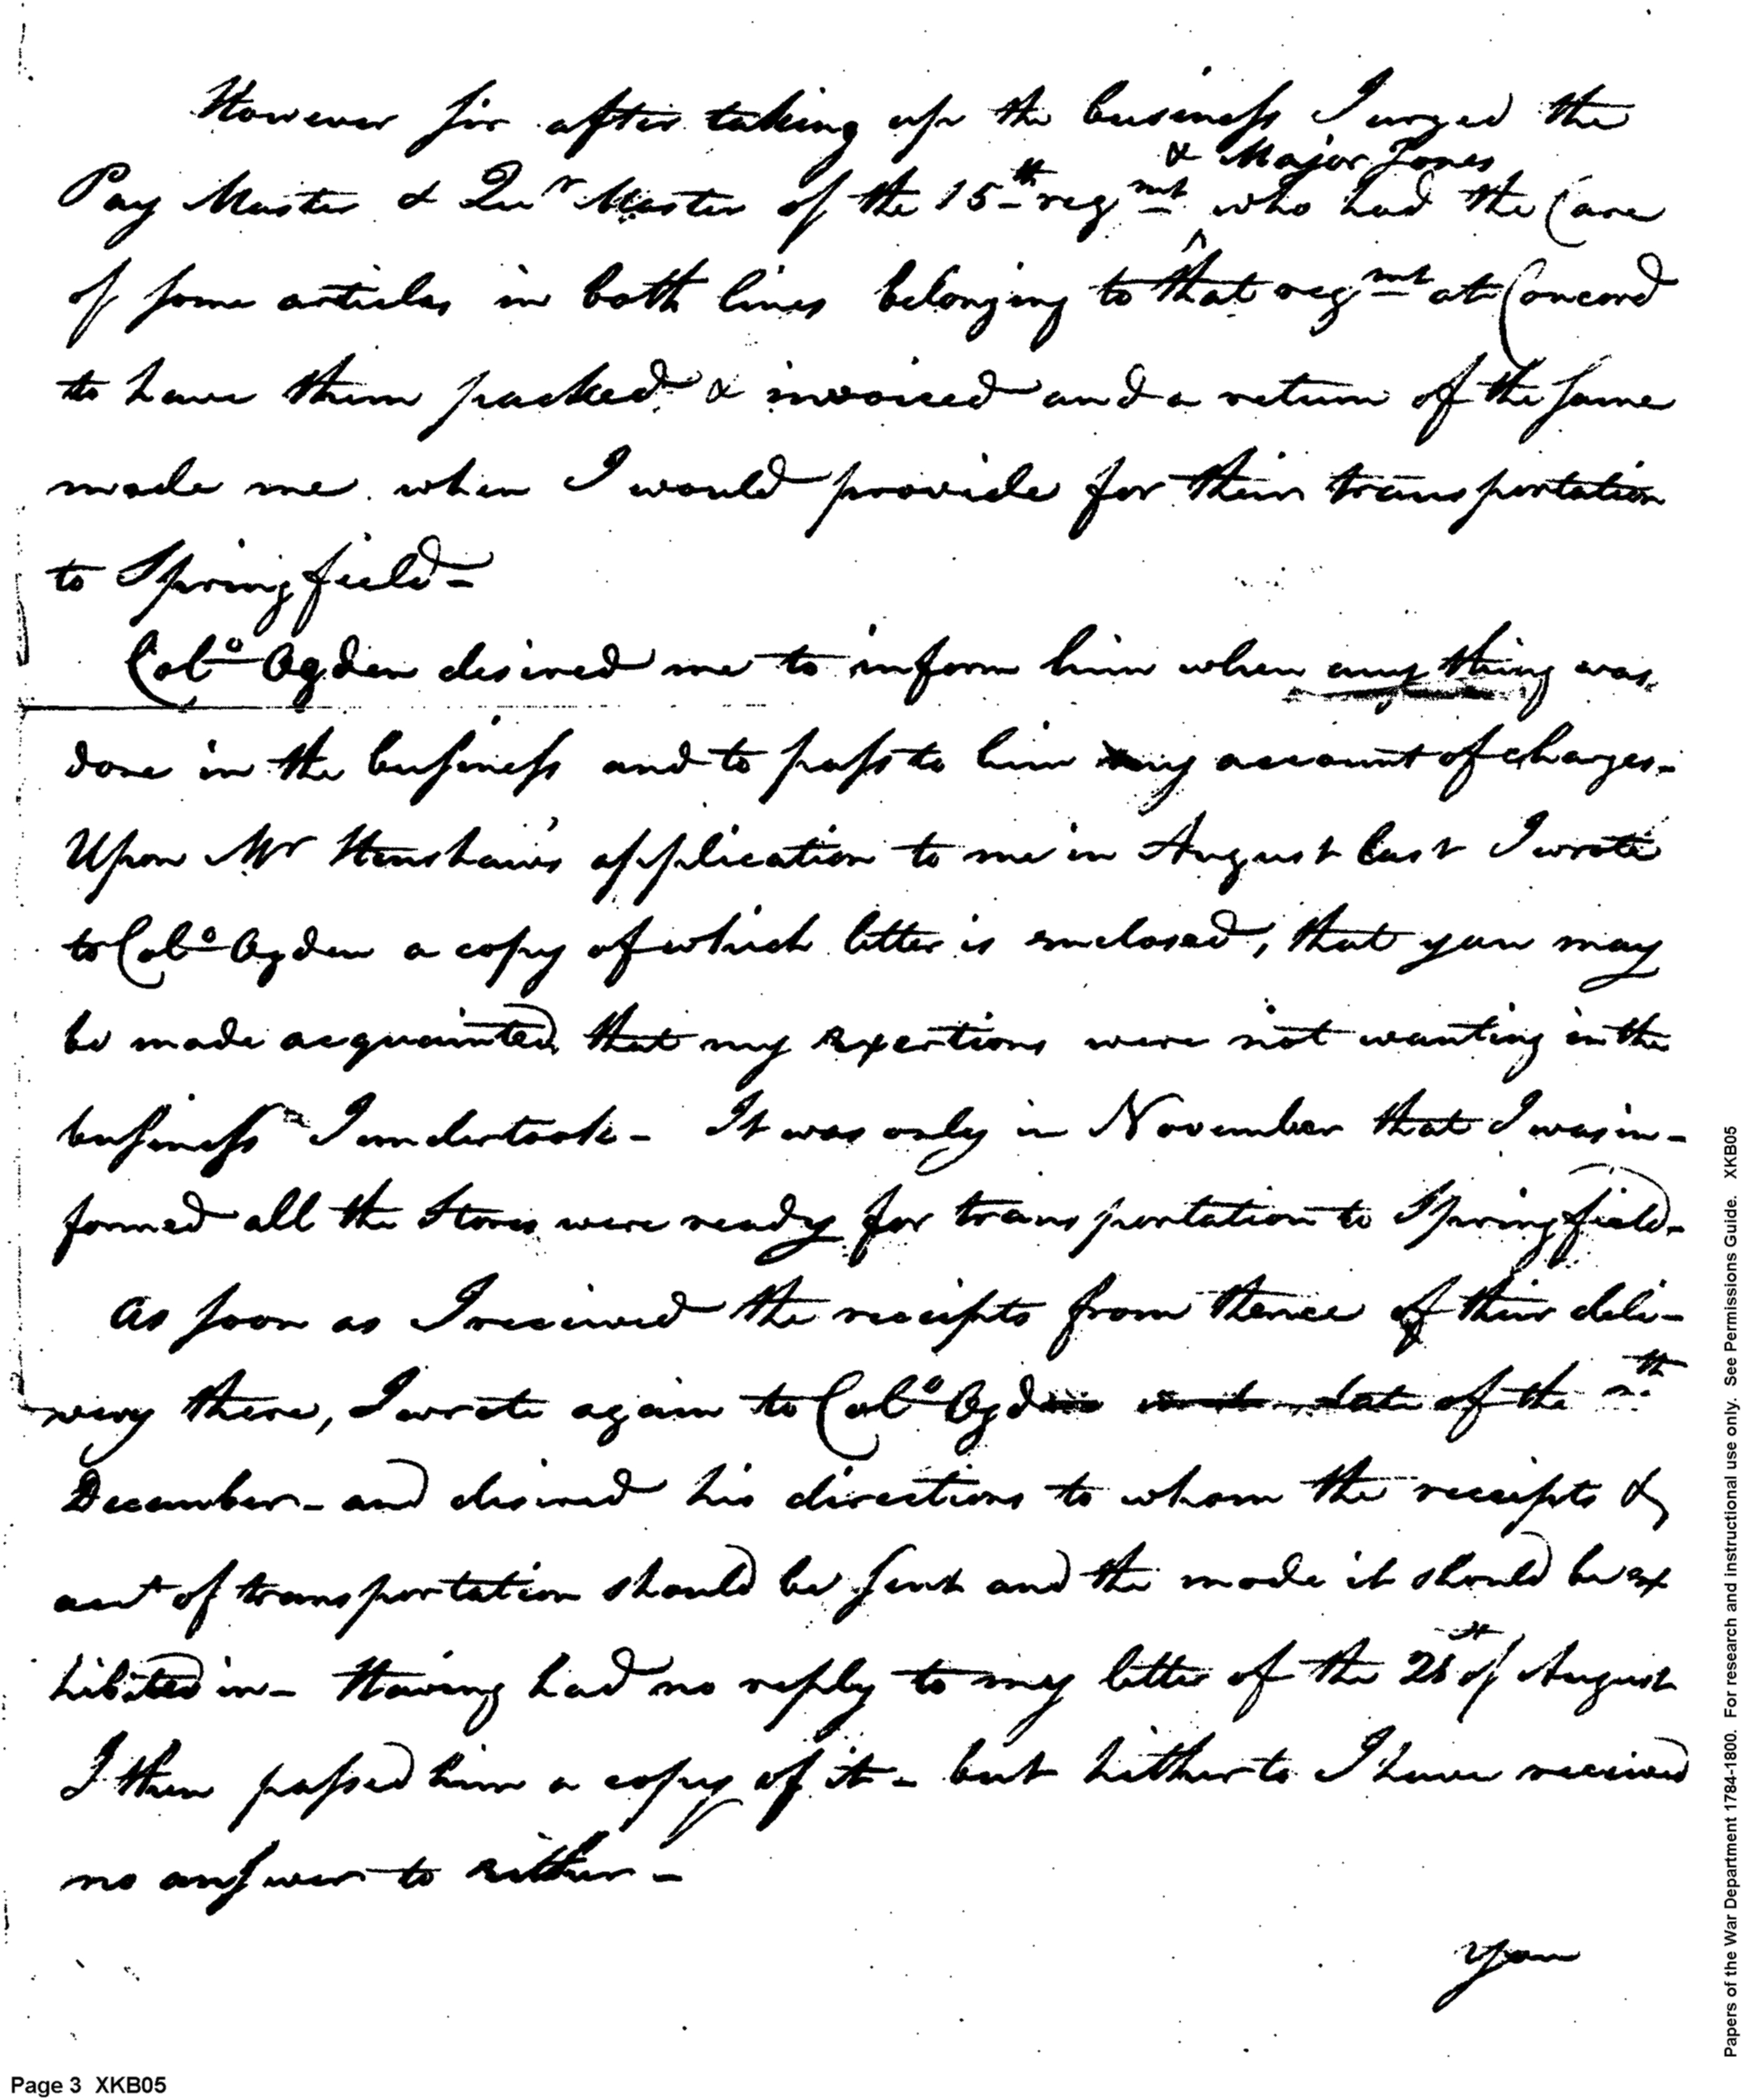 However sir after taking up the business I urged the
& Major Jones
Pay Master & Qur Master of the 15th regmt ^ who had the Care
of some articles in both lines belonging to that regmt at Concord
to have them packed & invoiced and a return of the same
made me when I would provide for their transportation
to Springfield-
Colo Ogden desired me to inform him when any thing was
done in the business and to pass to him my account of charges.
Upon Mr Henshaw's application to me in August last I wrote
to Colo Ogden a copy of which letter is enclosed, that you may
be made acquainted that my exertions were not wanting in the
business I undertook- It was only in November that I was in-
formed all the Stores were ready for transportation to Springfield.
As soon as I received the receipts from thence of their deli-
very there, I wrote again to Colo Ogden date of the
December- and desired his directions to whom the receipts &
acct of transportation should be sent and the mode it should be ex
hibited in- Having had no reply to my letter of the of August
I then passed him a copy of it- but hitherto I have received
no answer to either-
You
Page 3 XKB05
Papers of the War Department 1784-1800. For research and instructional use only. See Permissions Guide. XKB05